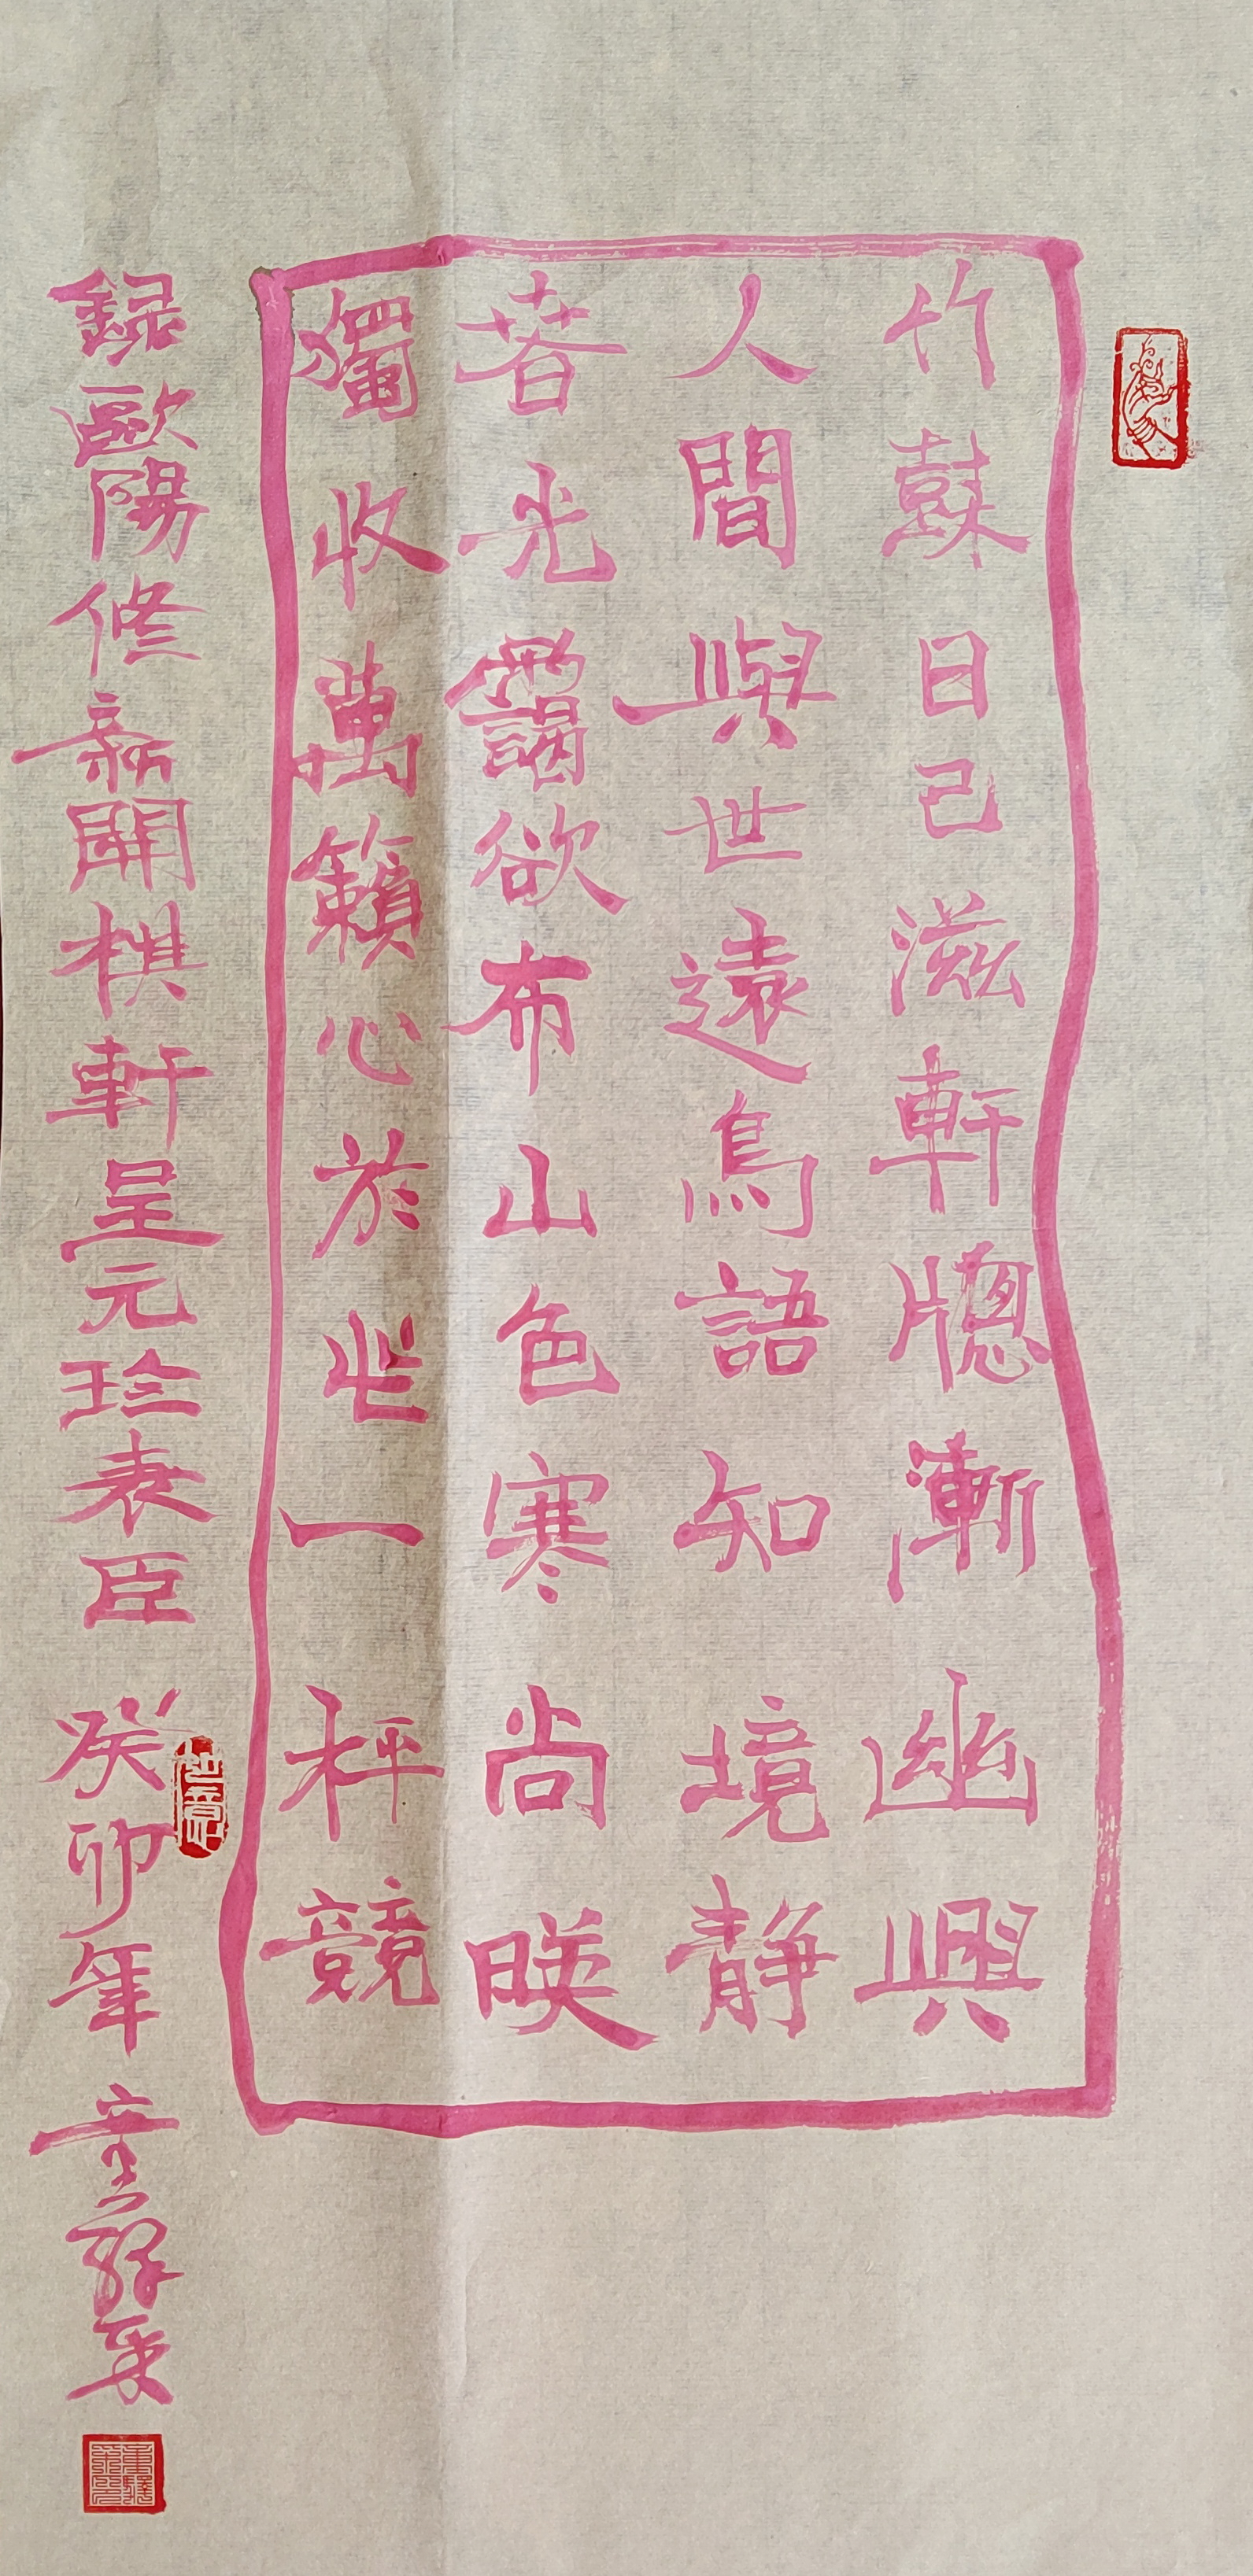 竹樹日己滋軒牕漸幽興
人間與世遠鳥語知境静
春光靄欲布山色寒尚暎
獨收萬籟心於此一枰競
録歐陽修新開棋軒呈元珍表臣 癸卯年 童